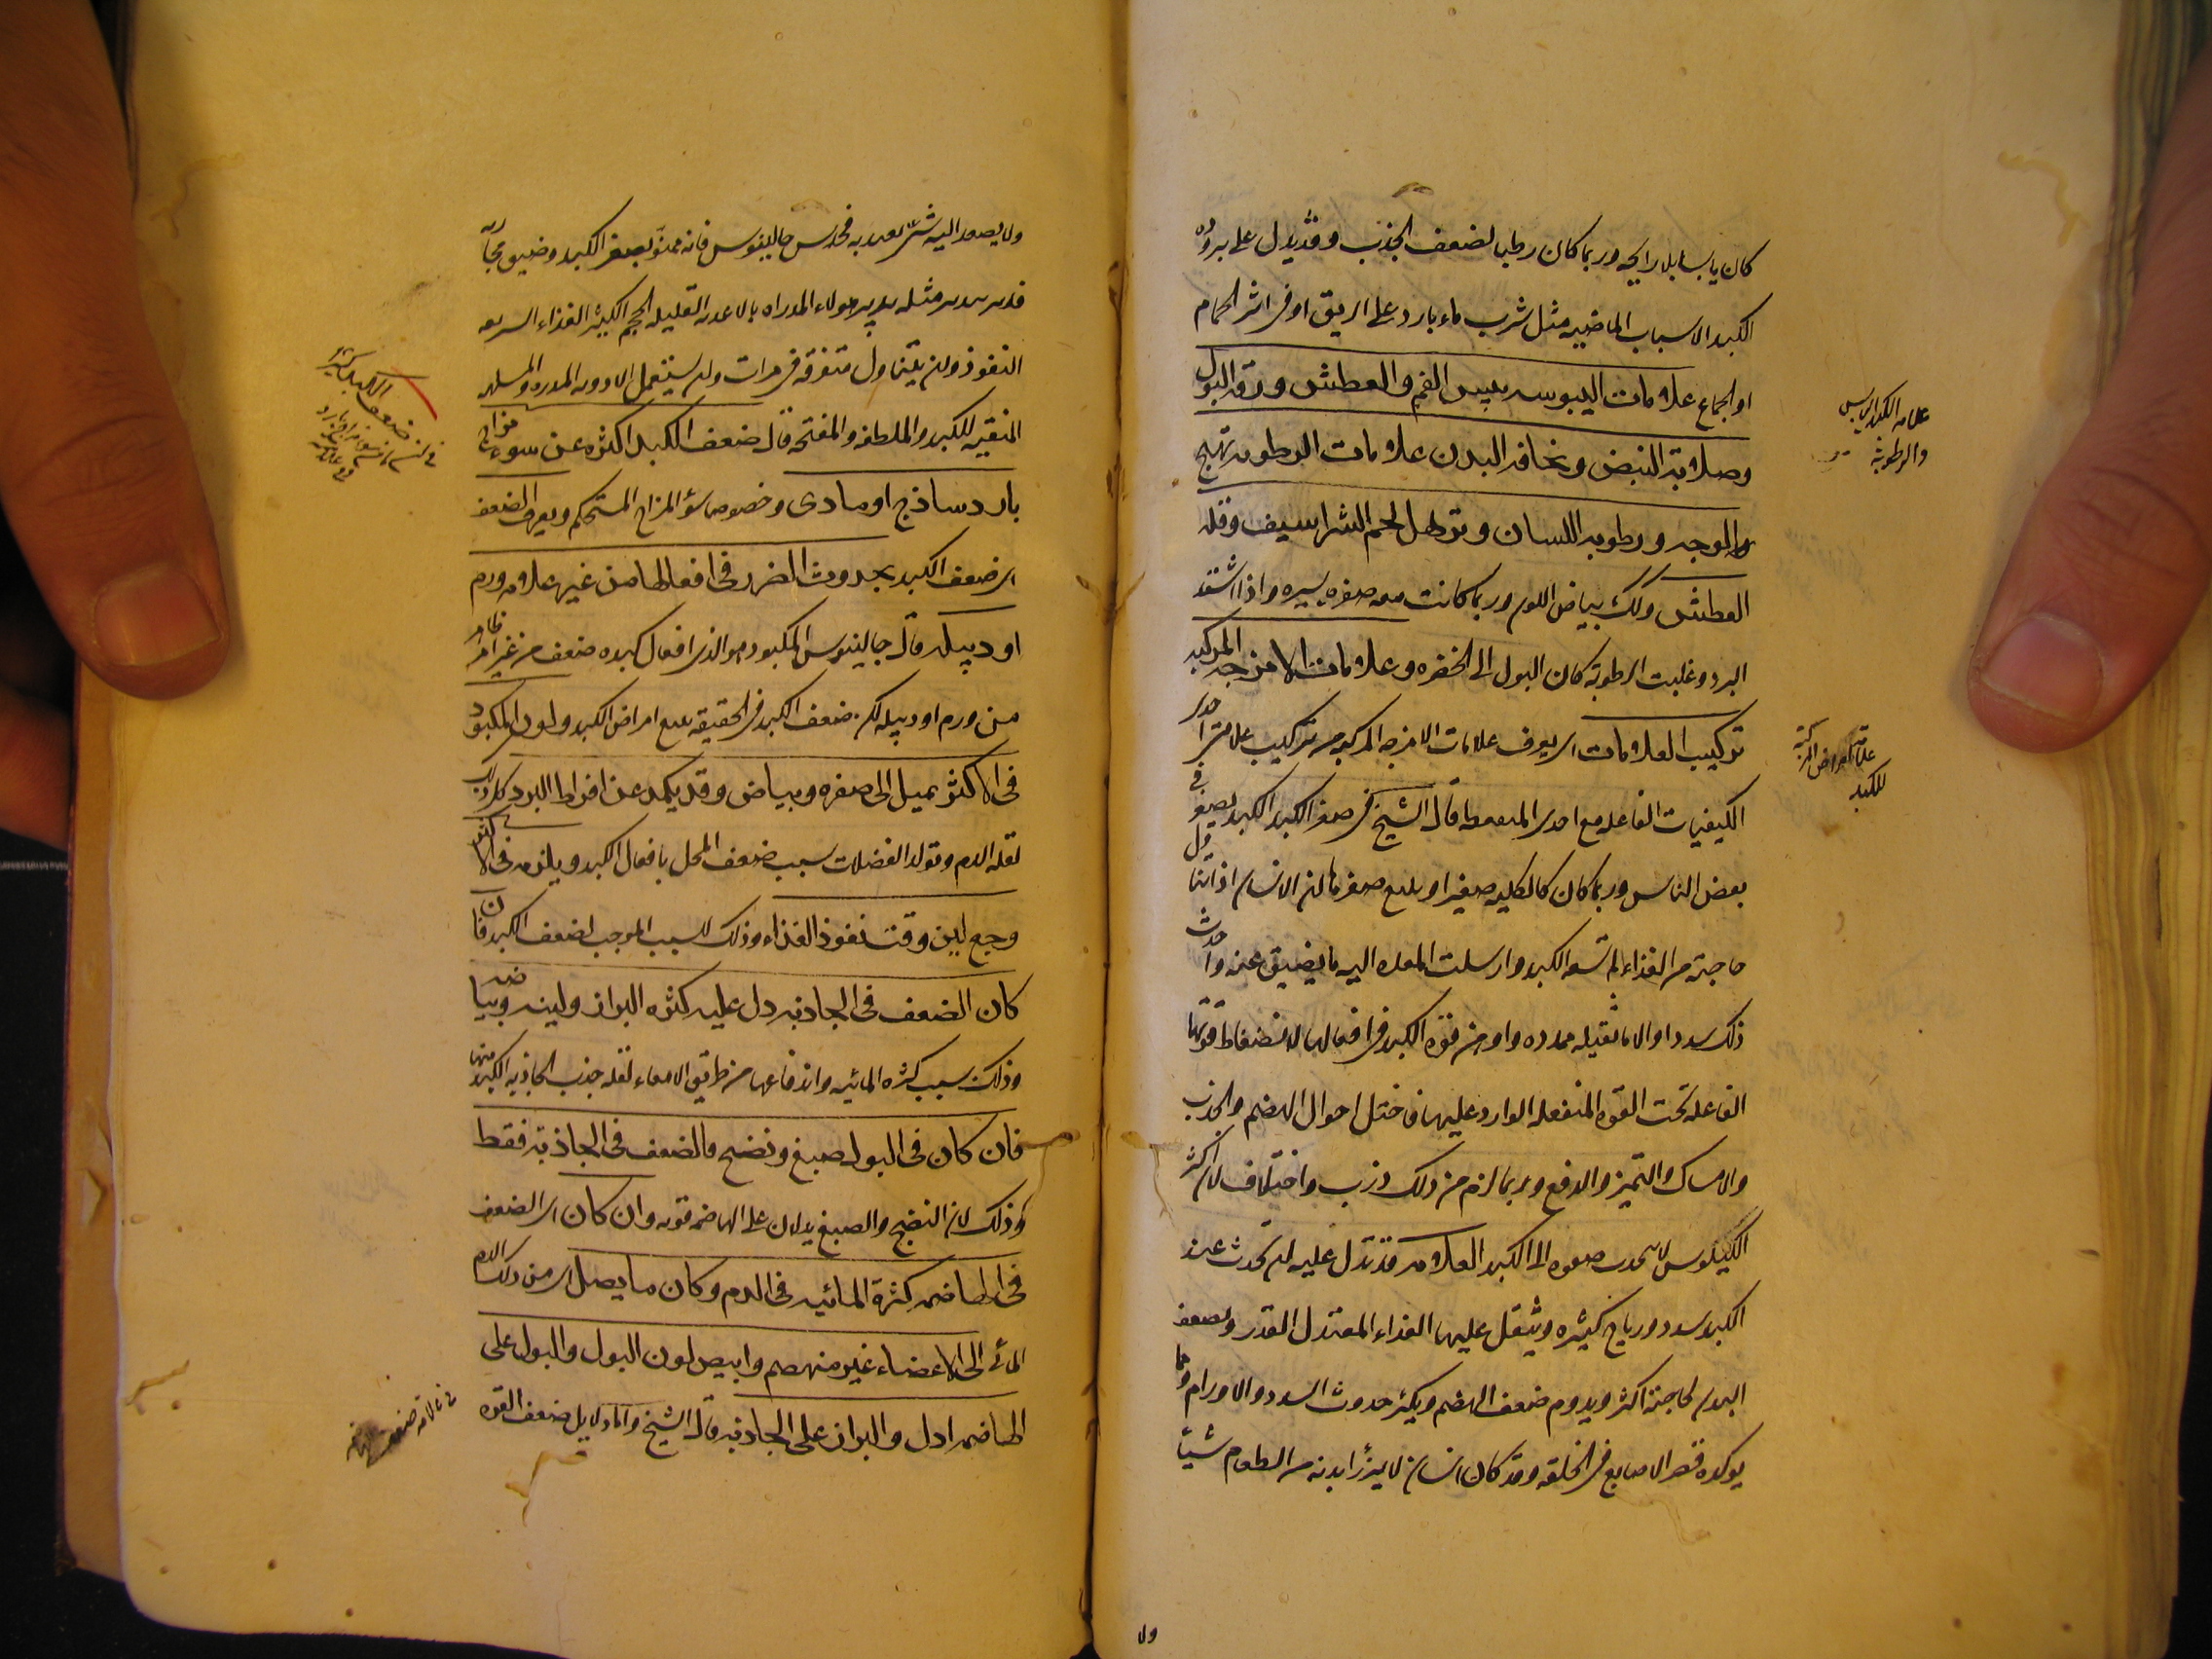 كان يابسا بلا رايحه وربما كان رطبا لضعف الجذب وقد يدل على برودة
الكبد الاسباب الماضيه مثل شرب ماء بارد على الريق او فى اثر الحمام
او الجماع علامات اليبوسه يبس الفم والعطش ورقه البول
وصلابة النبض ونحافه البدن علامات الرطوبه تهيج
والوجه ورطوبه اللسان وترهل لحم الشراسيف وقله
العطش وكذلك بياض اللون وربما كانت معه صفره يسيره واذا اشتد
البرد وغلبت الرطوبة كان البول الى الخضره وعلامات الامزجه المركبه
تركيب العلامات اى يعرف علامات الامزجه المركبه من تركيب علامة احدى
الكيفيات الفاعله مع احدى المنفعله قال الشيخ فى صغر الكبد الكبد يصغر فى
بعض الناس وربما كان كالكليه صغيرا ويتبع صغرها ان الانسان اذا تناول
حاجته من الغذاء لم تسعه الكبد وارسلت المعده اليه ما يضيق عنه واحدث
ذلك سددا والاما ثقيله ممدده واوهن قوه الكبد فى افعالها لانضغاط قوتها
الفاعله تحت القوه المنفعله الوارد عليها فاختل احوال الهضم والجذب
والامساك والتميز والدفع وربما لزم من ذلك ذرب واختلاف لان اكثر
الكيلوس لا ينجذب صفوه الى الكبد العلامه قد تدل عليه ان تحدث عند
الكبد سدد ورياح كثيره ويثقل عليها الغذاء المعتدل القدر ويضعف
البدن لحاجته اكثر ويدوم ضعف الهضم ويكثر حدوث السدد والاورام وهما
يوكده قصر الاصابع فى الخلقه وقد كان انسان لا يرزأ بدنه من الطعام شيئا
علامه الكبد اليابس
والرطوبة
علامة امراض المركبة
للكبد
ولا
ولا يصعد اليه شئ يعتد به فحدس جالينوس فانه ممنو بصغر الكبد وضيق مجاريه
فدبره تدبير مثله تدبير هولاء المداراه بالاغذيه القليله الحجم الكثير الغذاء السريعه
النفوذ وان يتناول متفرقه فى مرات وان يستعمل الادويه المدره والمسهله
المنقيه للكبد والملطفه والمفتحه قال ضعف الكبد اكثره عن سوء مزاج
بارد ساذج او مادى وخصوصا سؤ المزاج المستحكم ويعرف الضعف
اى ضعف الكبد بحدوث الضرر فى افعالها من غير علامه ورم
او دبيله قال جالينوس المكبود هو الذى افعال كبده ضعف من غير امر ظاهر
من ورم او دبيله لكن ضعف الكبد فى الحقيقه يتبع امراض الكبد ولون المكبود
فى الاكثر يميل الى صفره وبياض وقد يكمد عن افراط البرد كل ذلك
لقله الدم وتولد الفضلات بسبب ضعف المحل بافعال الكبد ويلزمه فى الاكثر
وجع لين وقت نفوذ الغذاء وذلك للسبب الموجب لضعف الكبد فان
كان الضعف فى الجاذبه دل عليه كثره البراز ولينه وبياضه
وذلك بسبب كثره المائيه واندفاعها من طريق الامعاء لقله جذب الجاذبه الكبد منها
فان كان فى البول صبغ ونضج فالضعف فى الجاذبة فقط
وذلك لان النضج والصبغ يدلان على الهاضمه قويه وان كان اى الضعف
فى الهاضمه كثرة المائيه فى الدم وكان ما يصل اى من ذلك الدم
المائى الى الاعضاء غير منهضم وابيض لون البول والبول على
الهاضمه ادل والبراز على الجاذبه قال الشيخ واما دلايل ضعف القوه
ضعف الكبد